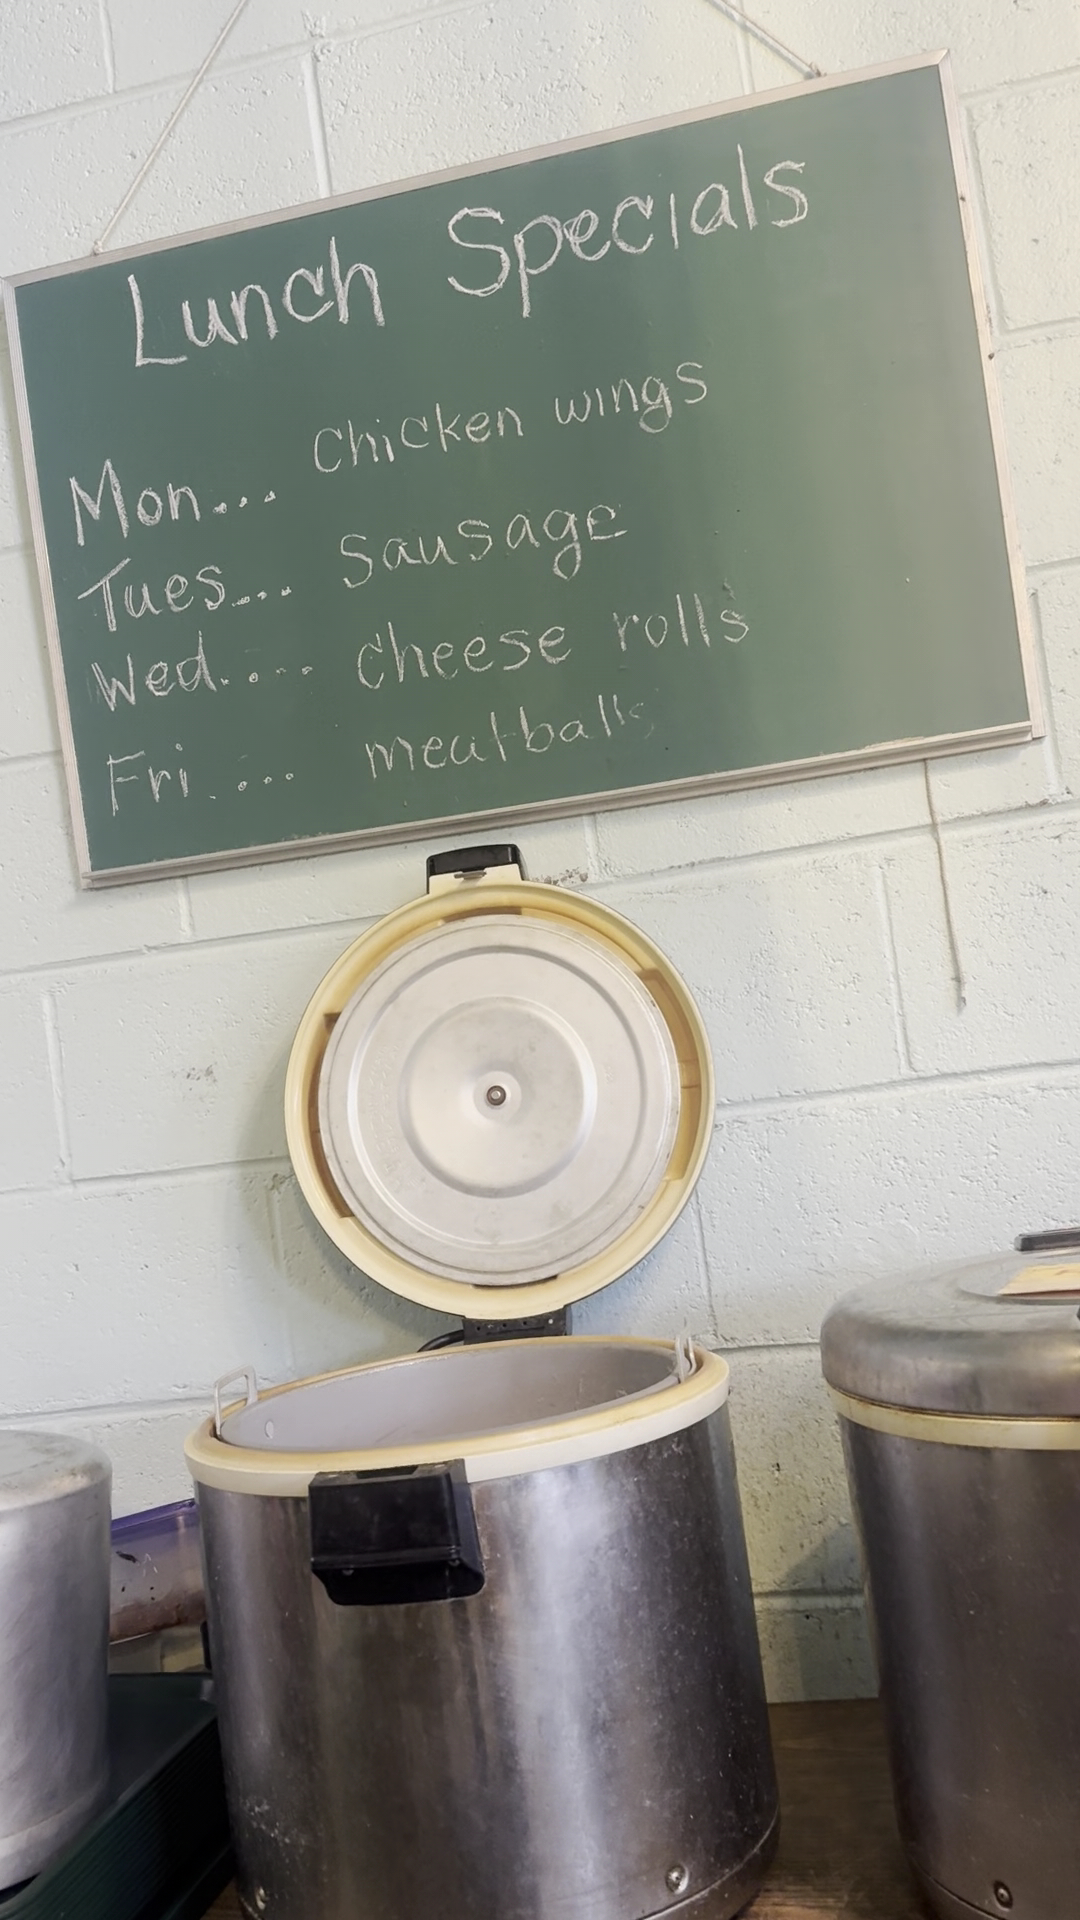 Lunch Specials
Mon... Chicken wings
Tues... Sausage
Wed.... Cheese rolls
Fri.... meatballs